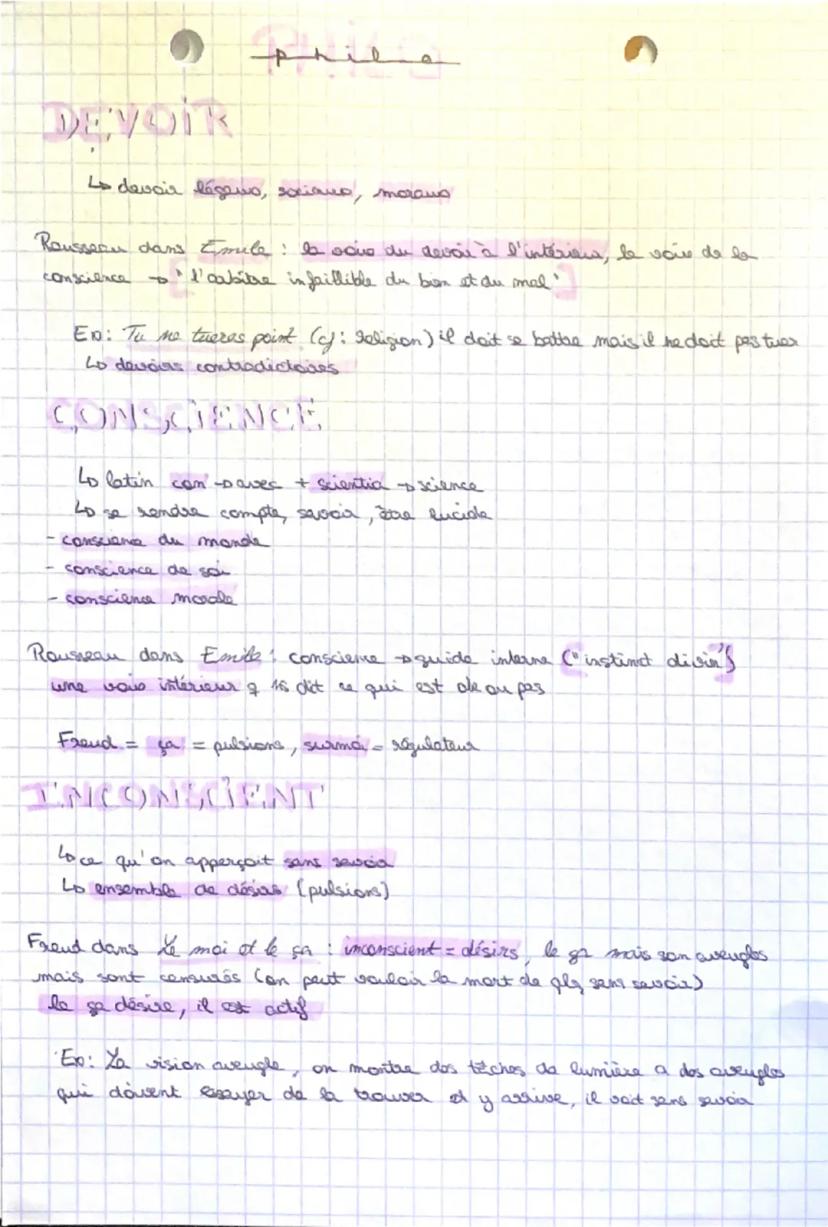 philo
DEVOIR
↳ devoir légaux, sociaux, moraux
Rousseau dans Emile : la voix du devoir à l'intérieur, la voix de la
conscience → "l'arbitre infaillible du bien et du mal"
Ex: Tu ne tueras point (cf: religion) il doit se battre mais il ne doit pas tuer
↳ devoirs contradictoires
CONSCIENCE
↳ latin con → avec + scientia → science
↳ se rendre compte, savoir, être lucide
- conscience du monde
- conscience de soi
- conscience morale
Rousseau dans Emile : conscience → guide interne ("instinct divin")
une voix intérieur q dit ce qui est ok ou pas
Freud = ça = pulsions, surmoi = régulateur
INCONSCIENT
↳ ce qu'on apperçoit sans savoir
↳ ensemble de désirs (pulsions)
Freud dans Le moi et le ça : inconscient = désirs, le ça mais son aveugles
mais sont censurés (on peut vouloir la mort de qlq sans savoir)
le ça désire, il est actif
Ex: La vision aveugle, on montre des tâches de lumière a des aveugles
qui doivent essayer de la trouver et y arrive, il voit sans savoir